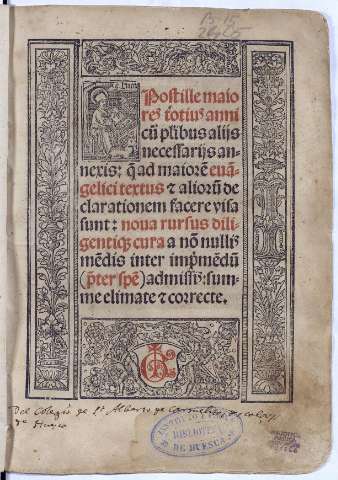 Postille maio
res totiusͣ anni
cũ plibus alijs
necessarijs an-
nexis: q̃ ad maiorẽ euã-
gelici textus ⁊ alioruꝫ de
clarationem facere visa
sunt: noua rursus dili
gentiqꝫ cura a nõ nullis
mẽdis inter impꝛimẽdũ
(p̃ter spẽ) admissis: sum-
me elimate ⁊ correcte.
Del Colegio de Sn Alberto de Carmelitas Descalços
de Huesca
BIBLIOTECA
DE HUESCA